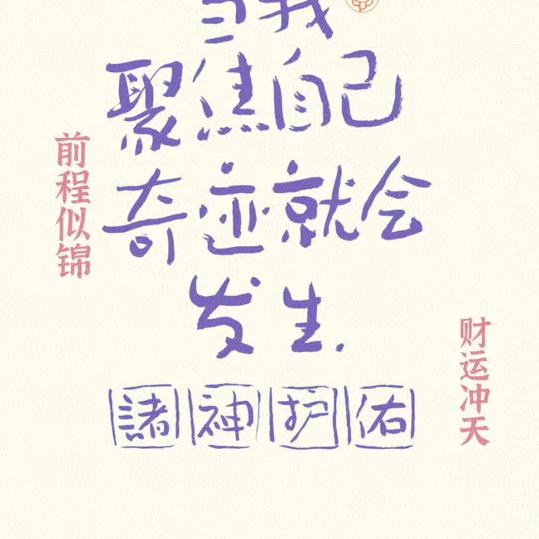 当我
聚焦自己
奇迹就会
发生.
諸神护佑
前程似锦
财运冲天